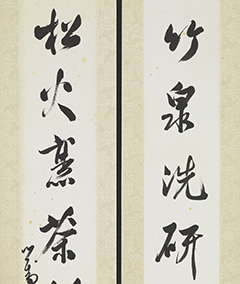 竹泉洗研
松火烹茶